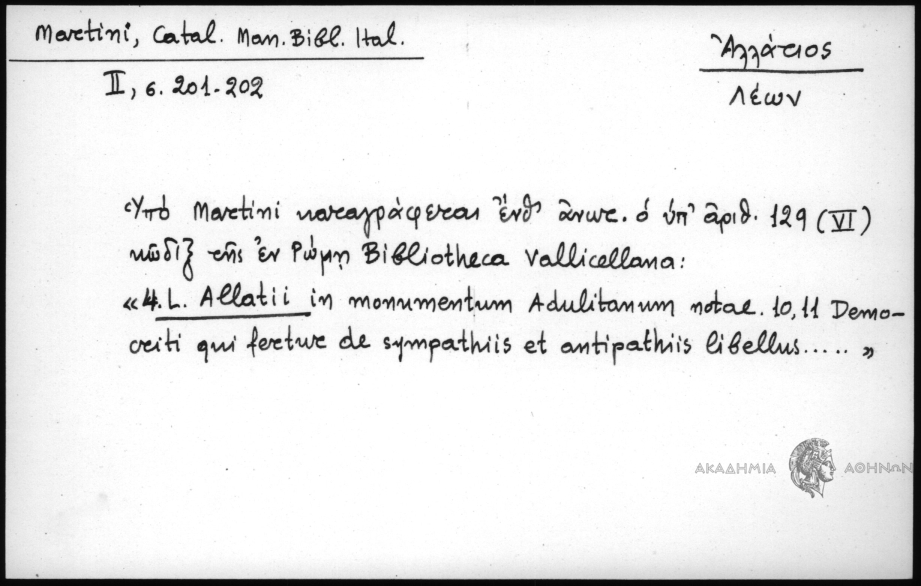 Martini, Catal. Man. Bibl. Ital.
II, σ. 201-202
Ἀλλάτιος
Λέων
Ὑπὸ Martini καταγράφεται ἔνθ' ἀνωτ. ὁ ὑπ' ἀριθ. 129 (VI)
κῶδιξ τῆς ἐν Ρώμῃ Bibliotheca Vallicellana:
«4. L. Allatii in monumentum Adulitanum notae. 10, 11 Demo-
criti qui fertur de sympathiis et antipathiis libellus..... »
ΑΚΑΔΗΜΙΑ ΑΘΗΝΩΝ